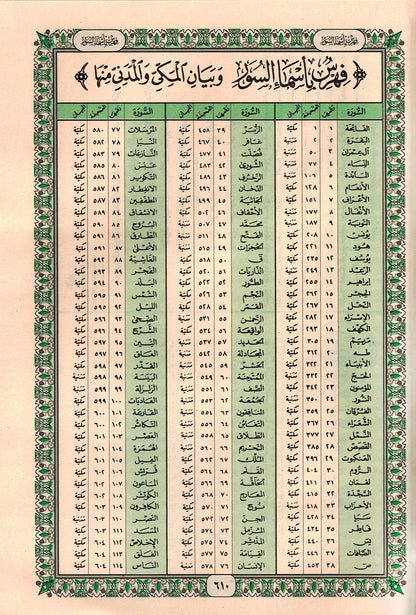 فهرس بأسماء السور
فهرس بأسماء السور
فهرس بأسماء السور وبيان المكي والمدني منها
السورة رقمها الصحيفة البيان
الفاتحة ١ ١ مكية
البقرة ٢ ٢ مدنية
آل عمران ٣ ٥٠ مدنية
النساء ٤ ٧٧ مدنية
المائدة ٥ ١٠٦ مدنية
الأنعام ٦ ١٢٨ مكية
الأعراف ٧ ١٥١ مكية
الأنفال ٨ ١٧٧ مدنية
التوبة ٩ ١٨٧ مدنية
يونس ١٠ ٢٠٨ مكية
هود ١١ ٢٢١ مكية
يوسف ١٢ ٢٣٥ مكية
الرعد ١٣ ٢٤٩ مدنية
إبراهيم ١٤ ٢٥٥ مكية
الحجر ١٥ ٢٦٢ مكية
النحل ١٦ ٢٦٧ مكية
الإسراء ١٧ ٢٨٢ مكية
الكهف ١٨ ٢٩٣ مكية
مريم ١٩ ٣٠٥ مكية
طه ٢٠ ٣١٢ مكية
الأنبياء ٢١ ٣٢٢ مكية
الحج ٢٢ ٣٣٢ مدنية
المؤمنون ٢٣ ٣٤٢ مكية
النور ٢٤ ٣٥٠ مدنية
الفرقان ٢٥ ٣٥٩ مكية
الشعراء ٢٦ ٣٦٧ مكية
النمل ٢٧ ٣٧٧ مكية
القصص ٢٨ ٣٨٥ مكية
العنكبوت ٢٩ ٣٩٦ مكية
الروم ٣٠ ٤٠٤ مكية
لقمان ٣١ ٤١١ مكية
السجدة ٣٢ ٤١٥ مكية
الأحزاب ٣٣ ٤١٨ مدنية
سبأ ٣٤ ٤٢٨ مكية
فاطر ٣٥ ٤٣٤ مكية
يس ٣٦ ٤٤٠ مكية
الصافات ٣٧ ٤٤٦ مكية
ص ٣٨ ٤٥٣ مكية
السورة رقمها الصحيفة البيان
الزمر ٣٩ ٤٥٨ مكية
غافر ٤٠ ٤٦٧ مكية
فصلت ٤١ ٤٧٧ مكية
الشورى ٤٢ ٤٨٣ مكية
الزخرف ٤٣ ٤٨٩ مكية
الدخان ٤٤ ٤٩٦ مكية
الجاثية ٤٥ ٤٩٩ مكية
الأحقاف ٤٦ ٥٠٢ مكية
محمد ٤٧ ٥٠٧ مدنية
الفتح ٤٨ ٥١١ مدنية
الحجرات ٤٩ ٥١٥ مدنية
ق ٥٠ ٥١٨ مكية
الذاريات ٥١ ٥٢٠ مكية
الطور ٥٢ ٥٢٣ مكية
النجم ٥٣ ٥٢٦ مكية
القمر ٥٤ ٥٢٨ مكية
الرحمن ٥٥ ٥٣١ مدنية
الواقعة ٥٦ ٥٣٤ مكية
الحديد ٥٧ ٥٣٧ مدنية
المجادلة ٥٨ ٥٤٢ مدنية
الحشر ٥٩ ٥٤٥ مدنية
الممتحنة ٦٠ ٥٤٩ مدنية
الصف ٦١ ٥٥١ مدنية
الجمعة ٦٢ ٥٥٣ مدنية
المنافقون ٦٣ ٥٥٤ مدنية
التغابن ٦٤ ٥٥٦ مدنية
الطلاق ٦٥ ٥٥٨ مدنية
التحريم ٦٦ ٥٦٠ مدنية
الملك ٦٧ ٥٦٢ مكية
القلم ٦٨ ٥٦٤ مكية
الحاقة ٦٩ ٥٦٦ مكية
المعارج ٧٠ ٥٦٨ مكية
نوح ٧١ ٥٧٠ مكية
الجن ٧٢ ٥٧٢ مكية
المزمل ٧٣ ٥٧٤ مكية
المدثر ٧٤ ٥٧٥ مكية
القيامة ٧٥ ٥٧٧ مكية
الإنسان ٧٦ ٥٧٨ مدنية
السورة رقمها الصحيفة البيان
المرسلات ٧٧ ٥٨٠ مكية
النبأ ٧٨ ٥٨٢ مكية
النازعات ٧٩ ٥٨٣ مكية
عبس ٨٠ ٥٨٥ مكية
التكوير ٨١ ٥٨٦ مكية
الانفطار ٨٢ ٥٨٧ مكية
المطففين ٨٣ ٥٨٧ مكية
الانشقاق ٨٤ ٥٨٩ مكية
البروج ٨٥ ٥٩٠ مكية
الطارق ٨٦ ٥٩١ مكية
الأعلى ٨٧ ٥٩١ مكية
الغاشية ٨٨ ٥٩٢ مكية
الفجر ٨٩ ٥٩٣ مكية
البلد ٩٠ ٥٩٤ مكية
الشمس ٩١ ٥٩٥ مكية
الليل ٩٢ ٥٩٥ مكية
الضحى ٩٣ ٥٩٦ مكية
الشرح ٩٤ ٥٩٦ مكية
التين ٩٥ ٥٩٧ مكية
العلق ٩٦ ٥٩٧ مكية
القدر ٩٧ ٥٩٨ مكية
البينة ٩٨ ٥٩٨ مدنية
الزلزلة ٩٩ ٥٩٩ مدنية
العاديات ١٠٠ ٥٩٩ مكية
القارعة ١٠١ ٦٠٠ مكية
التكاثر ١٠٢ ٦٠٠ مكية
العصر ١٠٣ ٦٠١ مكية
الهمزة ١٠٤ ٦٠١ مكية
الفيل ١٠٥ ٦٠١ مكية
قريش ١٠٦ ٦٠٢ مكية
الماعون ١٠٧ ٦٠٢ مكية
الكوثر ١٠٨ ٦٠٢ مكية
الكافرون ١٠٩ ٦٠٣ مكية
النصر ١١٠ ٦٠٣ مدنية
المسد ١١١ ٦٠٣ مكية
الإخلاص ١١٢ ٦٠٤ مكية
الفلق ١١٣ ٦٠٤ مكية
الناس ١١٤ ٦٠٤ مكية
٦١٠